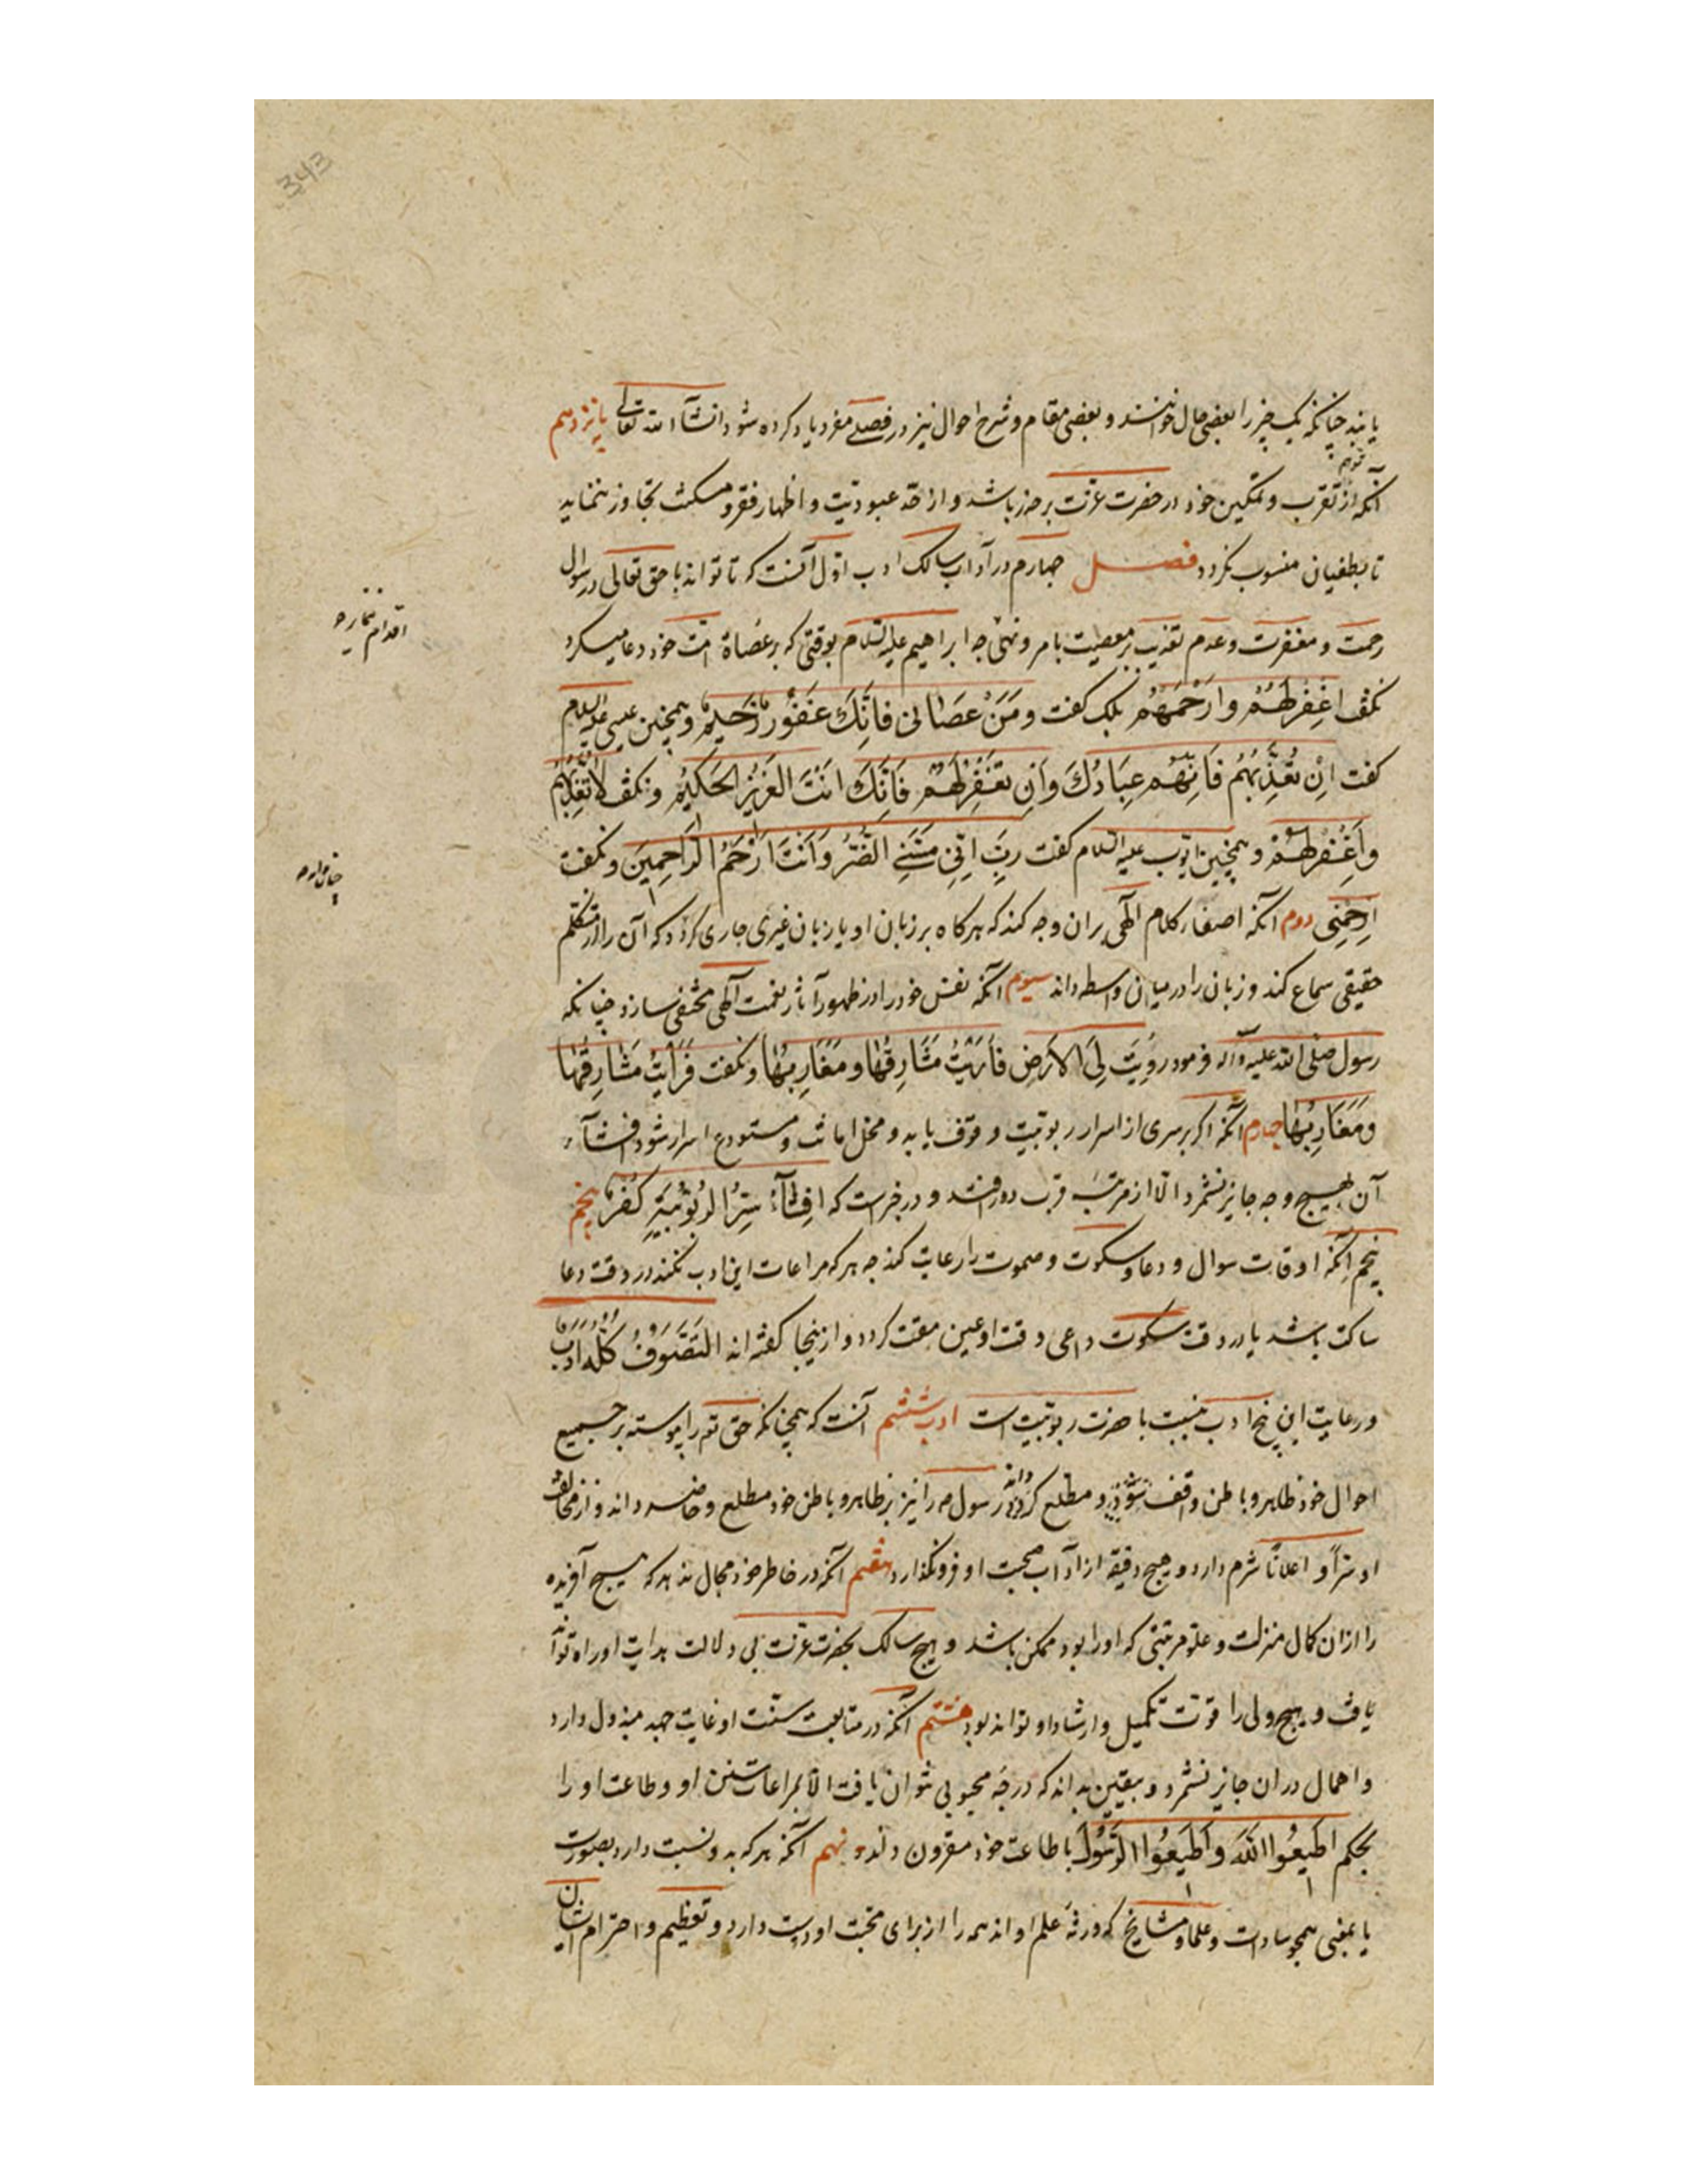 343
یابند چنانکه یک چیز را بعضی حال خوانند و بعضی مقام و شرح احوال نیز در فصلی مفرد یاد کرده شود انشآء الله تعالی پانزدهم
آنکه از تقرب و تمکین خود در حضرت عزت بر حذر باشد و از حد عبودیت و اظهار فقر و مسکنت تجاوز ننماید
تا بطغیان منسوب نگردد فصل چهارم در آداب سالک ادب اول آنست که تا تواند با حق تعالی در سؤال
رحمت و مغفرت و عدم تعذیب بر معصیت بامر و نهی چه ابراهیم علیه السلام بوقتی که بر عُصاة امت خود دعا میکرد
نکفت اغْفِرْلَهُمْ وَارْحَمْهُمْ بلک کفت وَمَنْ عَصَانی فَاِنَّكَ غَفُورٌ رَحیمٌ و همچنین عیسی علیه السلام
کفت اِنْ تُعَذِّبْهُمْ فَاِنَّهُمْ عِبَادُكَ وَاِنْ تَغْفِرْلَهُمْ فَاِنَّكَ اَنْتَ الْعَزیزُ الحَكیمُ و نکفت لَا تُعَذِّبْهُمْ
وَاغْفِرْلَهُمْ و همچنین ایوب علیه السلام کفت رَبِّ اِنّی مَسَّنِیَ الضُّرُّ وَاَنْتَ اَرْحَمُ الرَّاحِمِینَ و نکفت
اِرْحَمْنِی دوم آنکه اصغاء کلام الهی بران وجه کند که هرکاه بر زبان او یا زبان غیری جاری کردد که آن را از متکلم
حقیقی سماع کند و زبان را در میان واسطه داند سیوم آنکه نفس خود را در ظهور آثار نعمت الهی مختفی سازد چنانکه
رسول صلی الله علیه و آله فرمود رُوِیَتْ لِیَ الْاَرْضِ فَاُرِیتُ مَشَارِقُهَا وَمَغَارِبُهَا و نکفت فَرَاَیْتُ مَشَارِقَهَا
وَمَغَارِبُهَا چهارم آنکه اکر بر سری از اسرار ربوبیت وقوف یابد و محل امانت و مستودع اسرار شود افشآء
آن بهیچ وجه جایز نشمرد و الا از مرتبهٔ قرب دور افتد و در خبرست که اِفْشَآءُ سِرِّ الرُّبُوبِیَّةِ كُفْرٌ پنجم
پنجم آنکه اوقات سوال و دعا و سکوت و صموت را رعایت کند چه هر که مراعات این ادب نکند در وقت دعا
ساکت باشد یا در وقت سکوت داعی وقت او عین مقت کردد و ازینجا کفته اند التَّصَوُّفُ كُلُّهُ ادَبٌ
و رعایت این پنج ادب نسبت با حضرت ربوبیت است ادب ششم آنست که همچنانکه حق تع را پیوسته بر جمیع
احوال خود ظاهر و باطن واقف و مطلع داند رسول ص را نیز بر ظاهر و باطن خود مطلع و حاضر داند و از مخالفت
او سرّاً و اعلاناً شرم دارد و هیچ دقیقه از آداب صحبت او فرونکذارد هفتم آنکه در خاطر خود مجال ندهد که هیچ آفریده
را ازان کمال منزلت و علو مرتبتی که او را بود ممکن باشد و هیچ سالک بحضرت عزت بی دلالت هدایت او راه تواند
یافت و هیچ ولی را قوت تکمیل و ارشاد او تواند بود هشتم آنکه در متابعت سنت او غایت جهد مبذول دارد
و اهمال دران جایز نشمرد و بیقین بداند که درجهٔ محبوبی نتوان یافت الا بمراعات سنن او و طاعت او را
بحکم اَطیعُوا اللهَ وَاَطیعُوا الرَّسُولَ با طاعت خود مقرون داند نهم آنکه هر که بدو نسبت دارد بصورت
یا بمعنی همچو سادات و علما و مشایخ که ورثهٔ علم او اند همه را از برای محبت او دوست دارد و تعظیم و احترام ایشان
اقدام ننماید